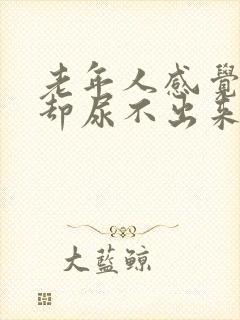 老年人感覺
却尿不出来
大藍鲸